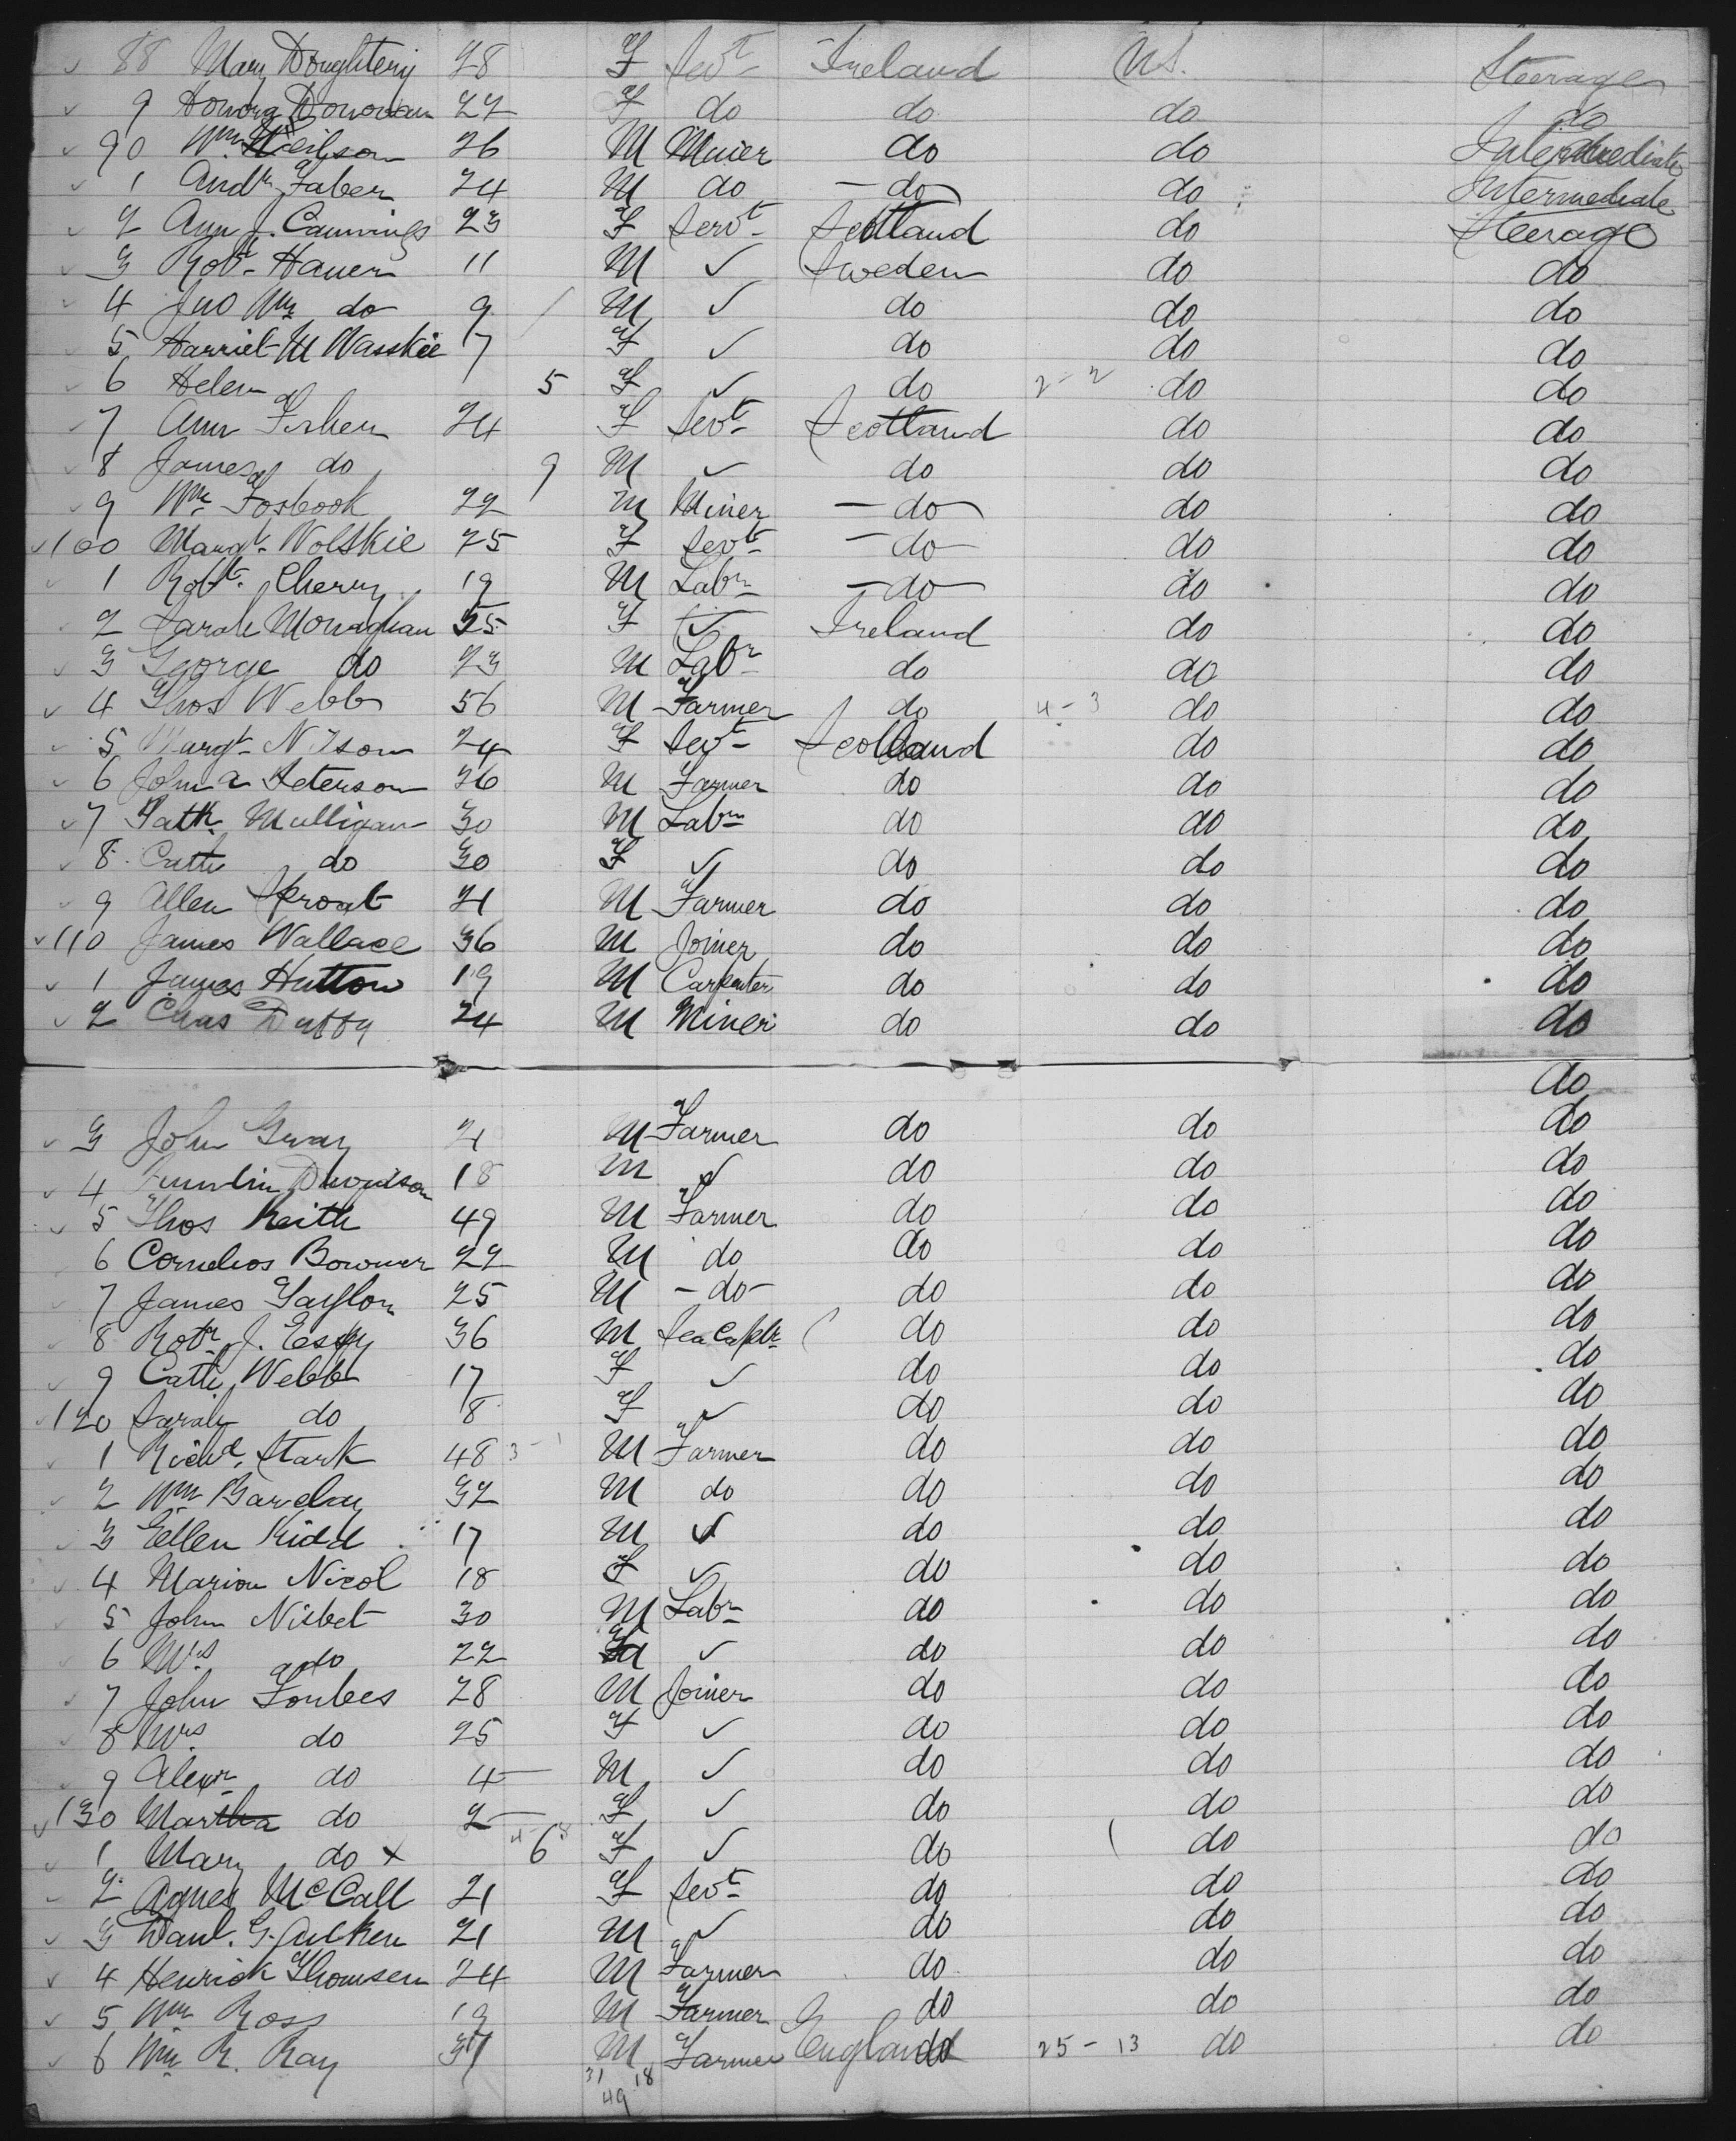 88 Mary Doughteny 28 F Sevt Ireland U.S. Steerage
9 Honora Donovan 22 F do do do do
90 Wm Neilson 26 M Miner do do Intermediate
1 Andw Faber 24 M do do do Intermediate
2 Ann J. Cummings 23 F Servt Scotland do Steerage
3 Robt Hauen 11 M ✓ Sweden do do
4 Jno Wm do 9 M ✓ do do do
5 Harriet M Wasskie 7 F ✓ do do do
6 Helen 5 F ✓ do 2-2 do do
7 Ann Fisher 24 F Sevt Scotland do do
8 James do 9 M ✓ do do do
9 Wm Fosbook 22 M Miner do do do
100 Margt Wolskie 25 F Sevt do do do
1 Robt Cherry 19 M Labr do do do
2 Sarah Monaghan 55 F ✓ Ireland do do
3 George do 23 M Labr do do do
4 Thos Webb 56 M Farmer do 4-3 do do
5 Margt Nilson 24 F Sevt Scotland do do
6 John A Peterson 26 M Farmer do do do
7 Patk Mulligan 30 M Labr do do do
8 Cath do 30 F ✓ do do do
9 Allen Sproat 21 M Farmer do do do
110 James Wallace 36 M Joiner do do do
1 James Hutton 19 M Carpenter do do do
2 Chas Duffy 24 M Miner do do do
do
3 John Gray 21 M Farmer do do do
4 Davidson 18 M ✓ do do do
5 Thos Keith 49 M Farmer do do do
6 Cornelios Bowmer 22 M do do do do
7 James Taylor 25 M -do- do do do
8 Robt J. Essy 36 M Sea Captn do do do
9 Cath Webb 17 F ✓ do do do
120 Sarah do 8 F ✓ do do do
1 Richd Stark 48 3-1 M Farmer do do do
2 Wm Barclay 32 M do do do do
3 Eellen Kidd 17 M ✓ do do do
4 Marion Nicol 18 F ✓ do do do
5 John Nisbet 30 M Labr do do do
6 Mrs do 22 F ✓ do do do
7 John Forbes 28 M Joiner do do do
8 Mrs do 25 F ✓ do do do
9 Alexr do 4 M ✓ do do do
130 Martha do 2 F ✓ do do do
1 Mary do x 6 F ✓ do do do
2 Agnes McCall 21 F Sevt do do do
3 Danl. G. Aitken 21 M ✓ do do do
4 Henrick Thomsen 24 M Farmer do do do
5 Wm Ross 19 M Farmer do do do
6 Wm R. Ray 37 M Farmer England 25-13 do do
31 18
49